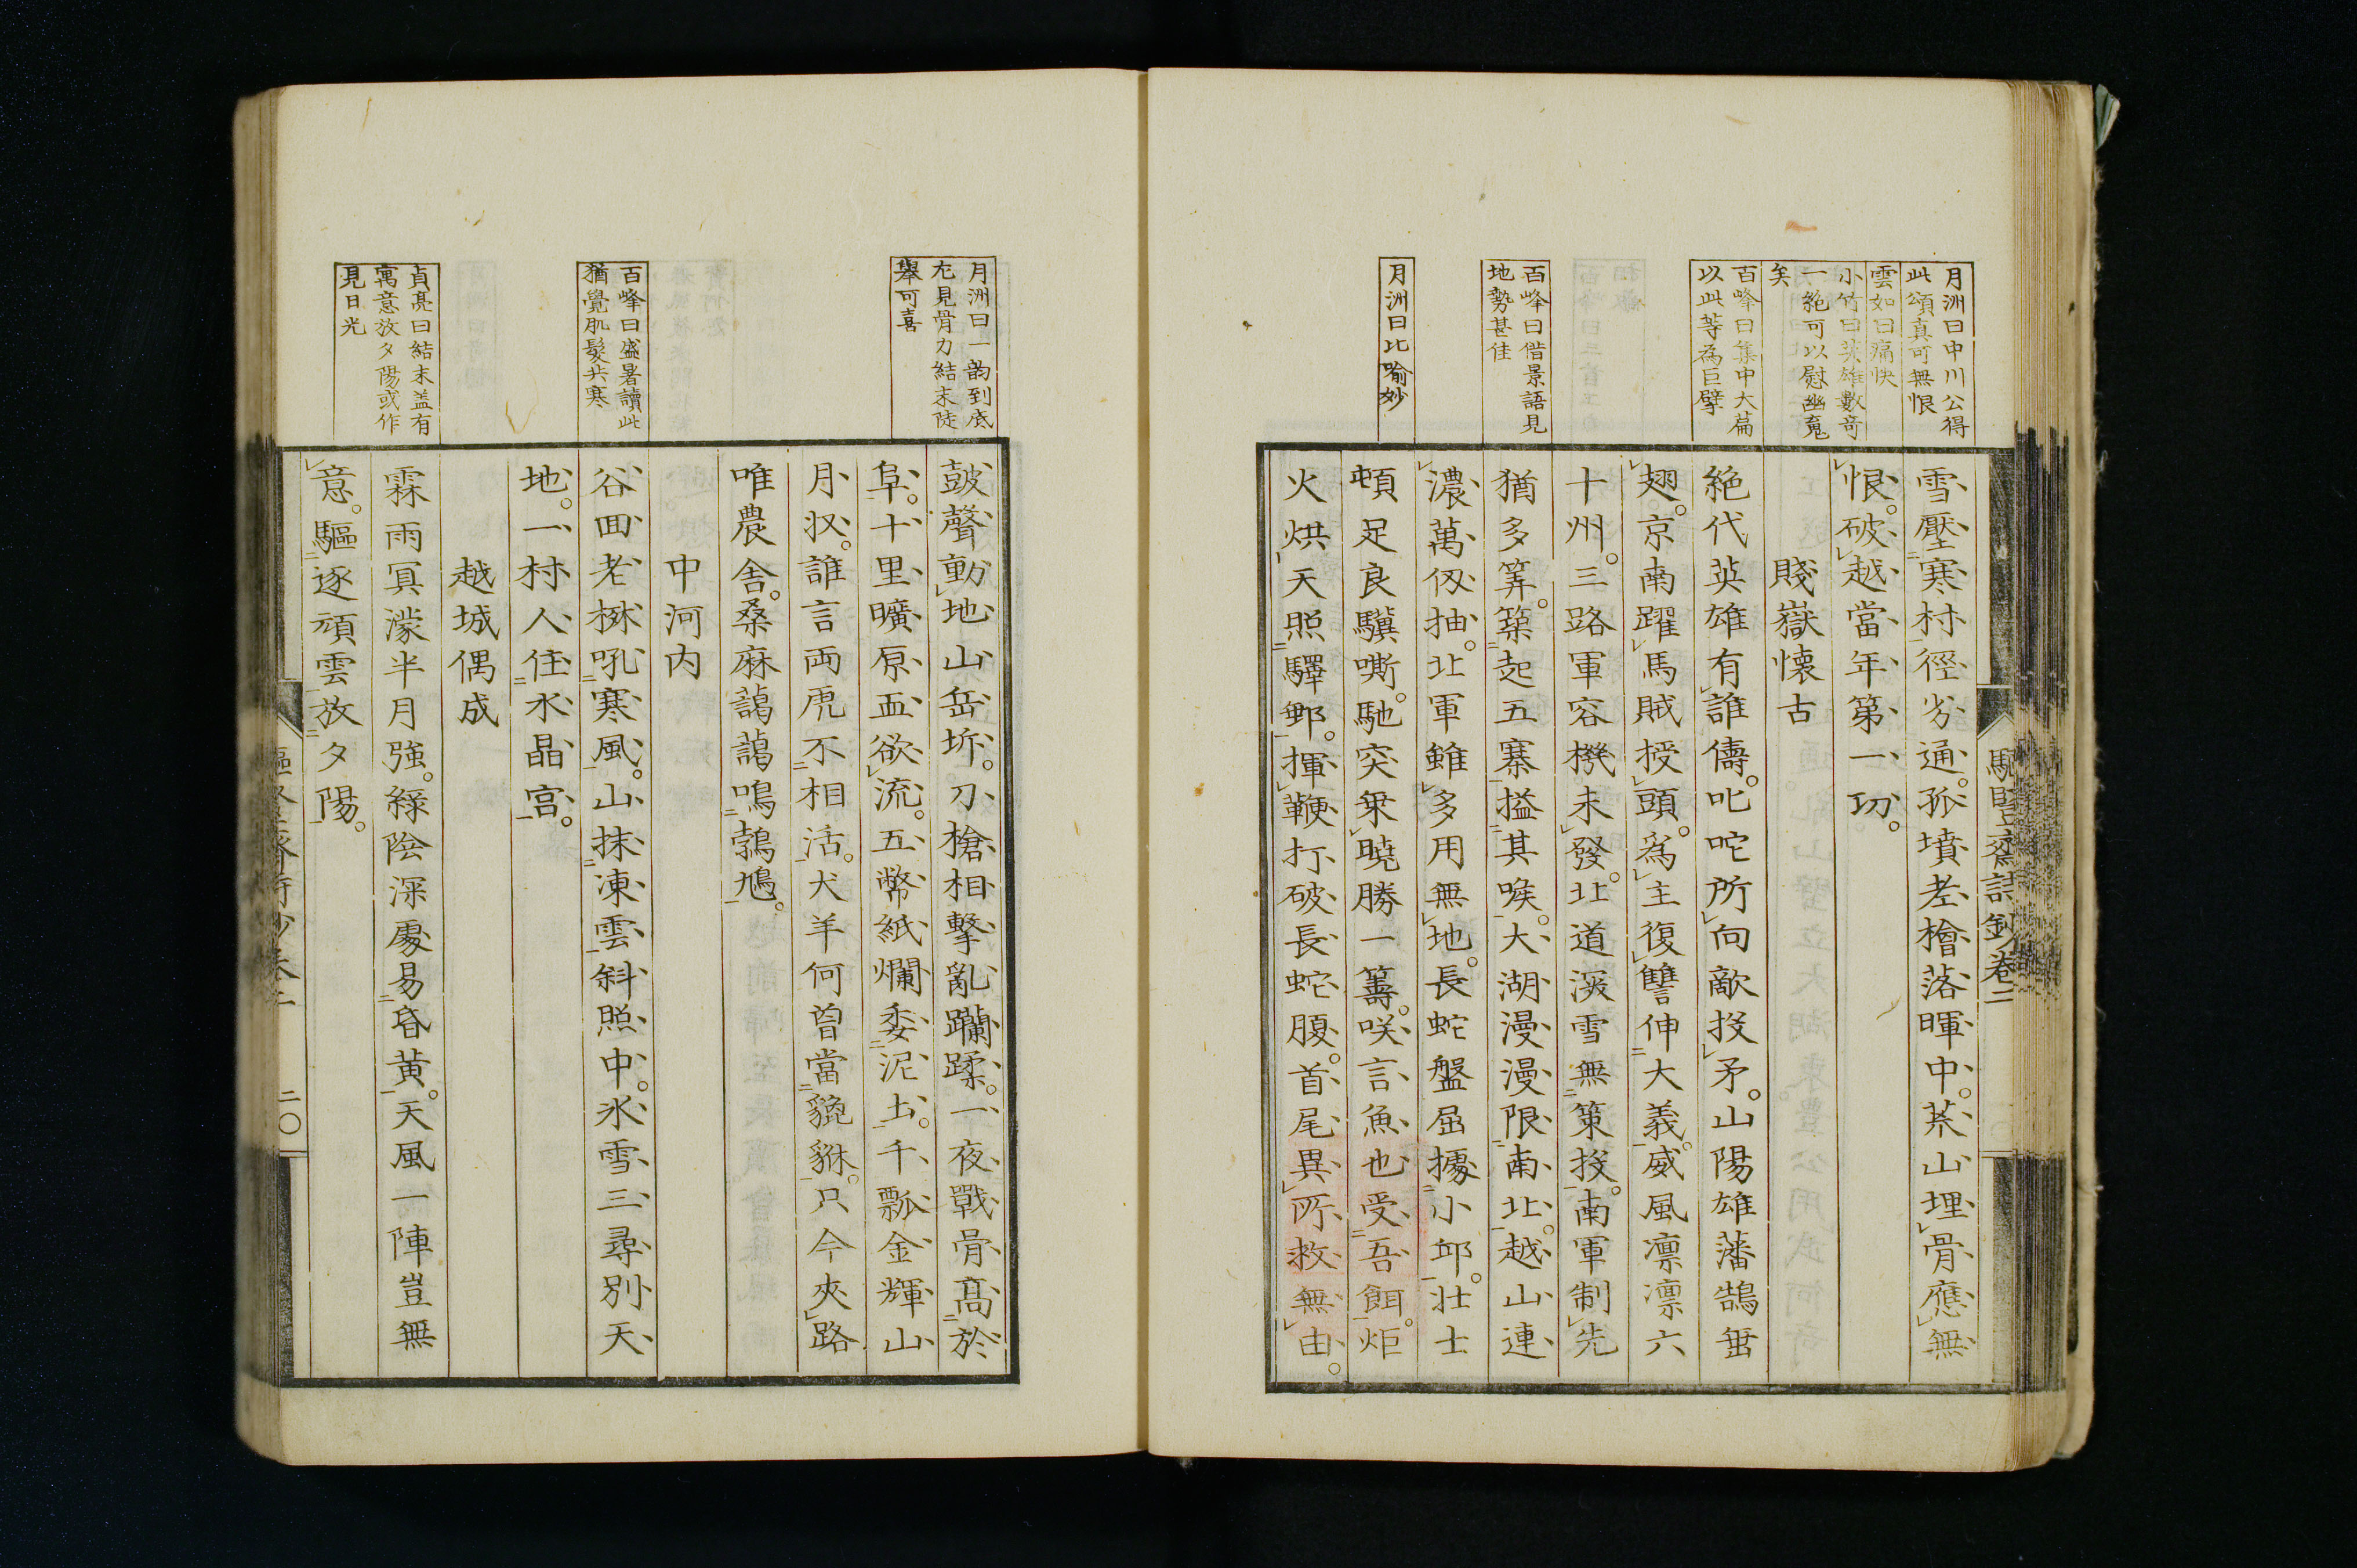 月洲曰中川公得
此頌真可無恨
雲如曰痛快
小竹曰英雄數奇
一絶可以慰幽魂
矣
百峰曰集中大篇
以此等為巨擘
百峰曰借景語見
地勢甚佳
月洲曰比喻妙
雪壓寒村徑劣通。孤墳老檜落暉中。茶山埋骨應無
恨。破越當年第一功。
賤嶽懷古
絶代英雄有誰儔。叱咤所向敵投矛。山陽雄藩鵠垂
翅。京南躍馬賊授頭。為主復讐伸大義。威風凛凛六
十州。三路軍容機未發。北道深雪無策投。南軍制先
猶多筭。築起五寨搤其喉。大湖漫漫限南北。越山連
濃萬仭抽。北軍雖多用無地。長蛇盤屈據小邱。壮士
頓足良驥嘶。馳突乗曉勝一籌。咲言魚也受吾餌。炬
火烘天照驛郵。揮鞭打破長蛇腹。首尾異所救無由。
月洲曰一韵到底
尤見骨力結末陡
舉可喜
百峰曰盛暑讀此
猶覺肌髮共寒
貞亮曰結末盖有
寓意放夕陽或作
見日光
鼓聲動地山岳坼。刀槍相擊亂躪蹂。一夜戰骨髙於
阜。十里曠原血欲流。五幣紙爛委泥土。千瓢金輝山
月収。誰言両虎不相活。犬羊何曽當貔貅。只今夾路
唯農舎。桑麻藹藹鳴鵓鳩。
中河内
谷囬老楙吼寒風。山抹凍雲斜照中。氷雪三尋別天
地。一村人住水晶宮。
越城偶成
霖雨冥濛半月強。緑陰深處易昏黄。天風一陣豈無
意。驅逐頑雲放夕陽。
二〇